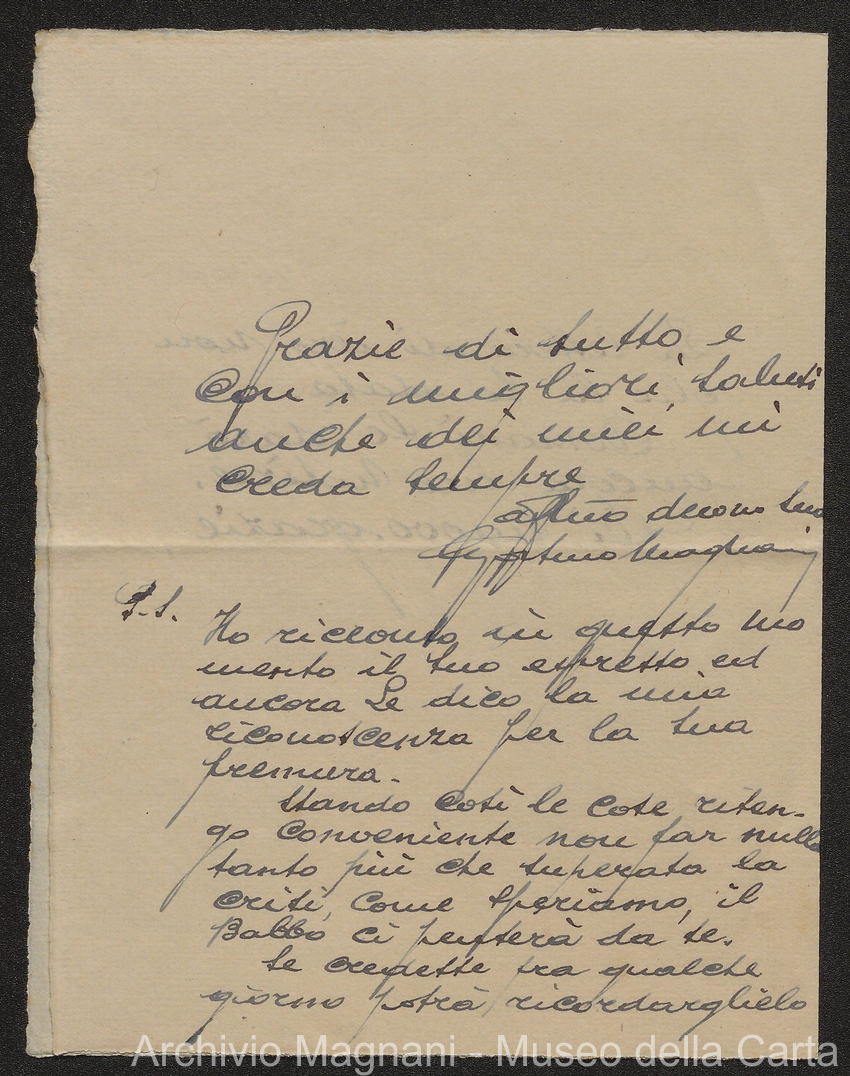 Grazie di tutto e
con i migliori saluti
anche dei miei mi
creda sempre
Magnani
P.S.
Ho ricevuto in questo mo
mento il Suo espresso ed
ancora Le dico la mia
riconoscenza per la Sua
premura.
Stando così le cose riten-
go conveniente non far nulla
tanto più che superata la
crisi, come speriamo, il
Babbo ci penserà da se.
Se credesse fra qualche
giorno potrà ricordarglielo
Archivio Magnani - Museo della Carta